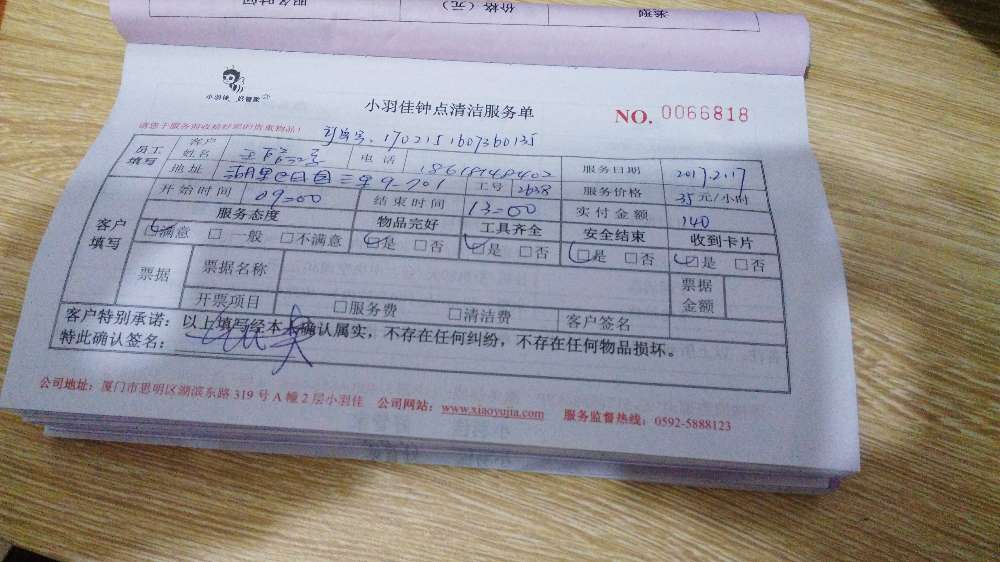 类型 价格（元） 服务时间
小羽佳 好管家
小羽佳钟点清洁服务单
NO. 0066818
请您于服务前收拾好您的贵重物品！
订单号：1702151607360135
员工填写 客户姓名 电话 服务日期 2017.2.17
地址 工号 2638 服务价格 35元/小时
客户填写 开始时间 09=00 结束时间 13=00 实付金额 140
服务态度 物品完好 工具齐全 安全结束 收到卡片
☑满意 □一般 □不满意 ☑是 □否 ☑是 □否 ☑是 □否 ☑是 □否
票据 票据名称 票据金额
开票项目 □服务费 □清洁费 客户签名
客户特别承诺：以上填写经本人确认属实，不存在任何纠纷，不存在任何物品损坏。
特此确认签名：
公司地址：厦门市思明区湖滨东路 319 号 A 幢 2 层小羽佳 公司网站：www.xiaoyujia.com 服务监督热线：0592-5888123